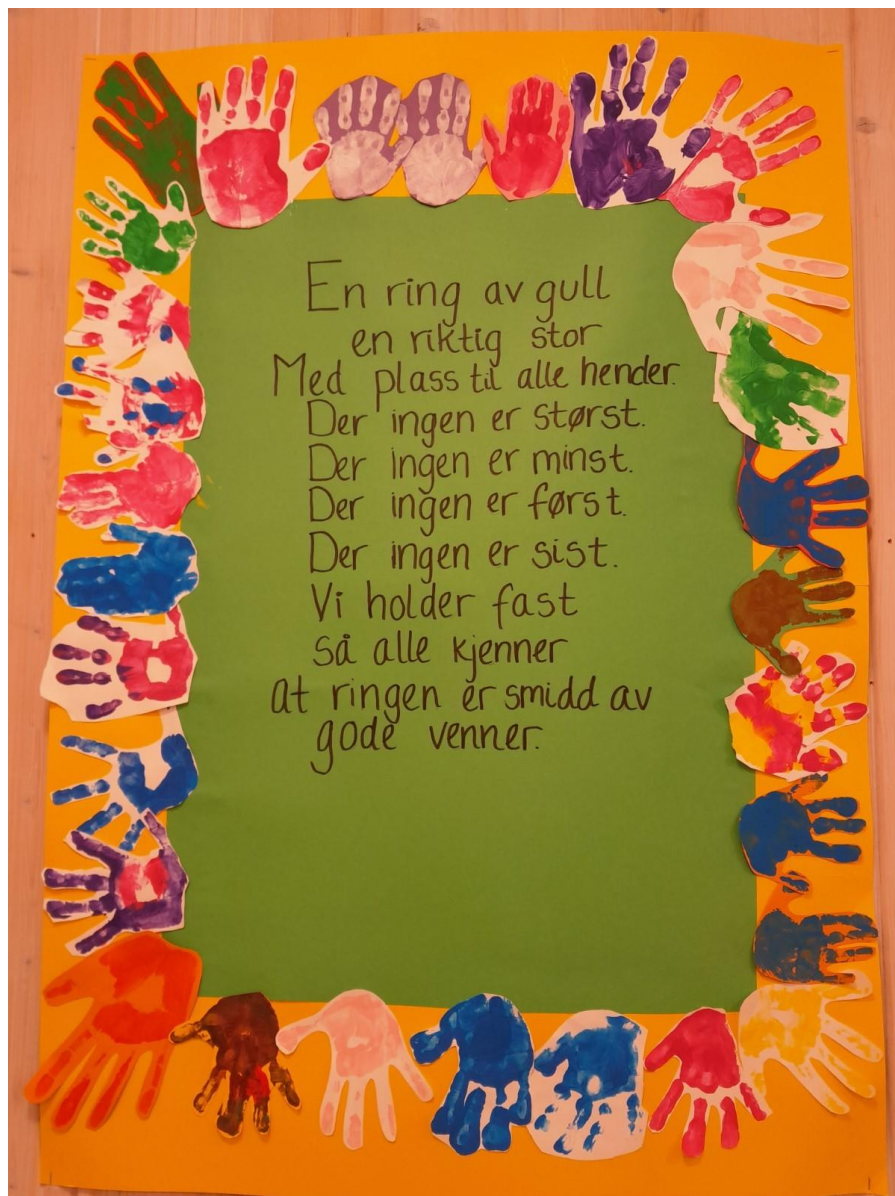 En ring av gull
en riktig stor
Med plass til alle hender.
Der ingen er størst.
Der ingen er minst.
Der ingen er først.
Der ingen er sist.
Vi holder fast
så alle kjenner
At ringen er smidd av
gode venner.